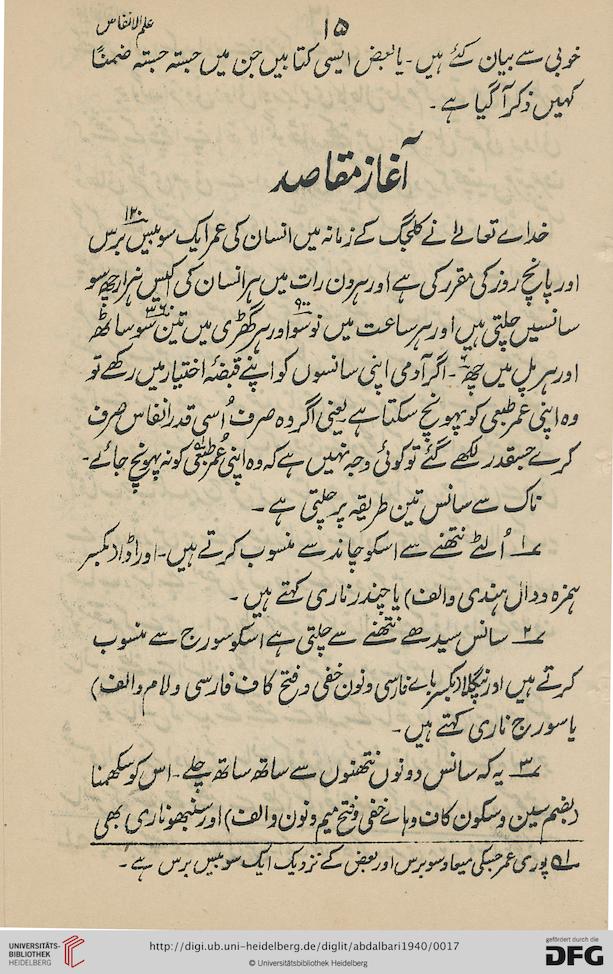 علم الانفاس
۱۵
خوبی سے بیان کئے ہیں۔ یا بعض ایسی کتابیں جن میں جستہ جستہ ضمناً
کہیں ذکر آگیا ہے۔
آغاز مقاصد
خداے تعالےٰ نے کلجگ کے زمانہ میں انسان کی عمر ایک سو بیس ۱۲۰ برس
اور پانچ روز کی مقرر کی ہے اور ہر دن رات میں ہر انسان کی اکیس ہزار چھ سو
سانسیں چلتی ہیں اور ہر ساعت میں نو سو ۹۰۰ اور ہر گھڑی میں تین سو ساٹھ ۳۶۰
اور ہر پل میں چھ ۶۔ اگر آدمی اپنی سانسوں کو اپنے قبضۂ اختیار میں رکھے تو
وہ اپنی عمر طبعی کو پہونچ سکتا ہے۔ یعنی اگر وہ صرف اُسی قدر انفاس صرف
کرے جسقدر لکھے گئے تو کوئی وجہ نہیں ہے کہ وہ اپنی عُمر طبعی۱ کو نہ پہونچ جائے۔
ناک سے سانس تین طریقہ پر چلتی ہے۔
۱۔ اُلٹے نتھنے سے اسکو چاند سے منسوب کرتے ہیں۔ اور اڈا (بکسر
ہمزہ و دال ہندی والف) یا چندر ناری کہتے ہیں۔
۲۔ سانس سیدھے نتھنے سے چلتی ہے اسکو سورج سے منسوب
کرتے ہیں اور پنگلا (بکسر باے فارسی و نون خفی و فتح کاف فارسی و لام والف)
یا سورج ناری کہتے ہیں۔
۳۔ یہ کہ سانس دونوں نتھنوں سے ساتھ ساتھ چلے۔ اس کو سکھمنا
(بضم سین و سکون کاف و ہاے خفی و فتح میم و نون والف) اور سنبھو ناری بھی
۱؎ پوری عمر جسکی میعاد سو برس اور بعض کے نزدیک ایک سو بیس برس ہے۔
UNIVERSITÄTS-
BIBLIOTHEK
HEIDELBERG
http://digi.ub.uni-heidelberg.de/diglit/abdalbari1940/0017
© Universitätsbibliothek Heidelberg
gefördert durch die
DFG